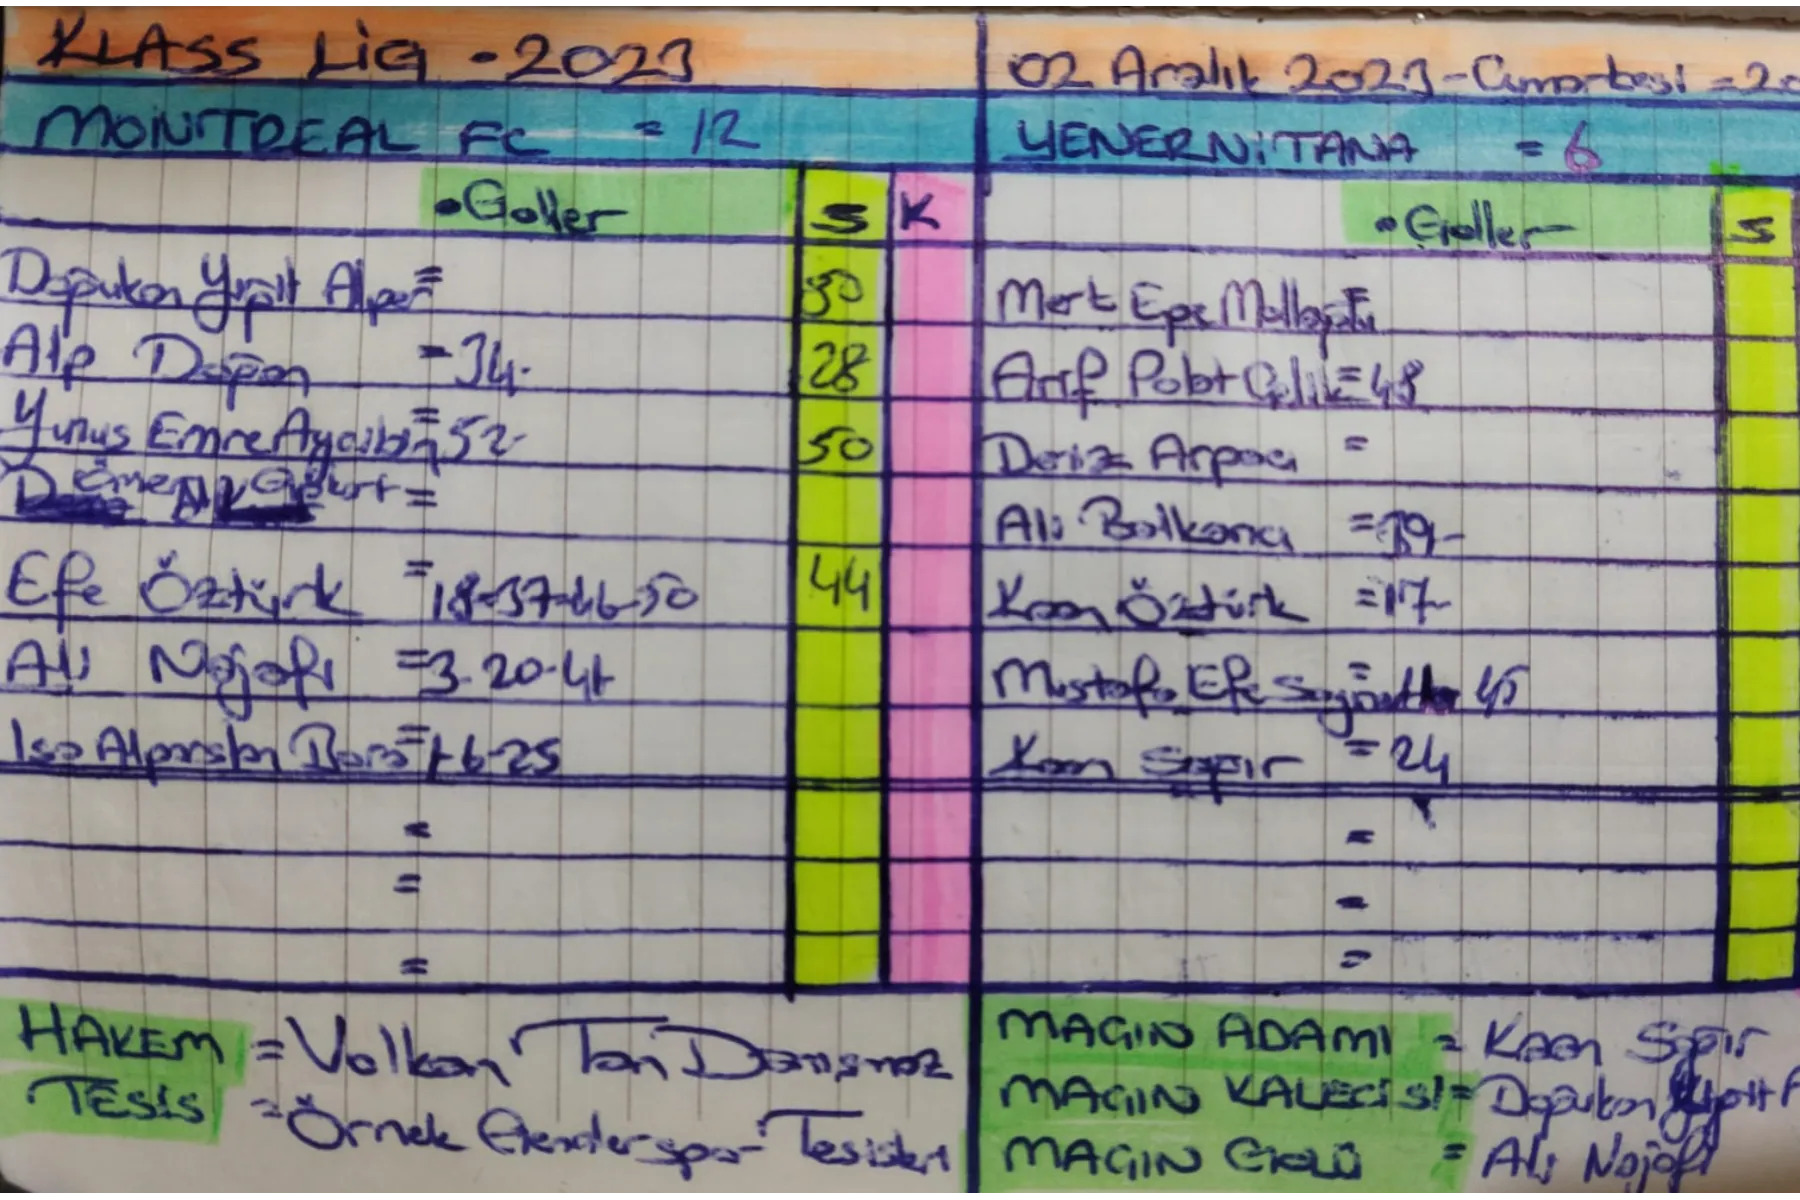 KLASS LiG - 2023
02 Aralık 2023 - Cumartesi - 20
MONİTREAL FC = 12
YENERNiTANA = 6
• Goller S K
• Goller S
Doğukan Yiğit Alper = 30
Alp Doğan = 34. 28
Yunus Emre Aycibin = 52- 50
Ömer =
Efe Öztürk = 18-37-46-50 44
Ali Najafi = 3-20-41
İsa Alparslan Barış = 16-25
=
=
=
Mert Ege Mollaoğlu =
Arif Polat Çelik = 48
Deniz Arpacı =
Ali Balkancı = 39-
Kaan Öztürk = 17-
Mustafa Efe = 45
Kaan Sapır = 24
=
=
=
HAKEM = Volkan Tan Danışmaz
TESİS = Örnek Gençlerspor Tesisleri
MAÇIN ADAMI = Kaan Sapır
MAÇIN KALECİSİ = Doğukan Yiğit A
MAÇIN GOLÜ = Ali Najafi